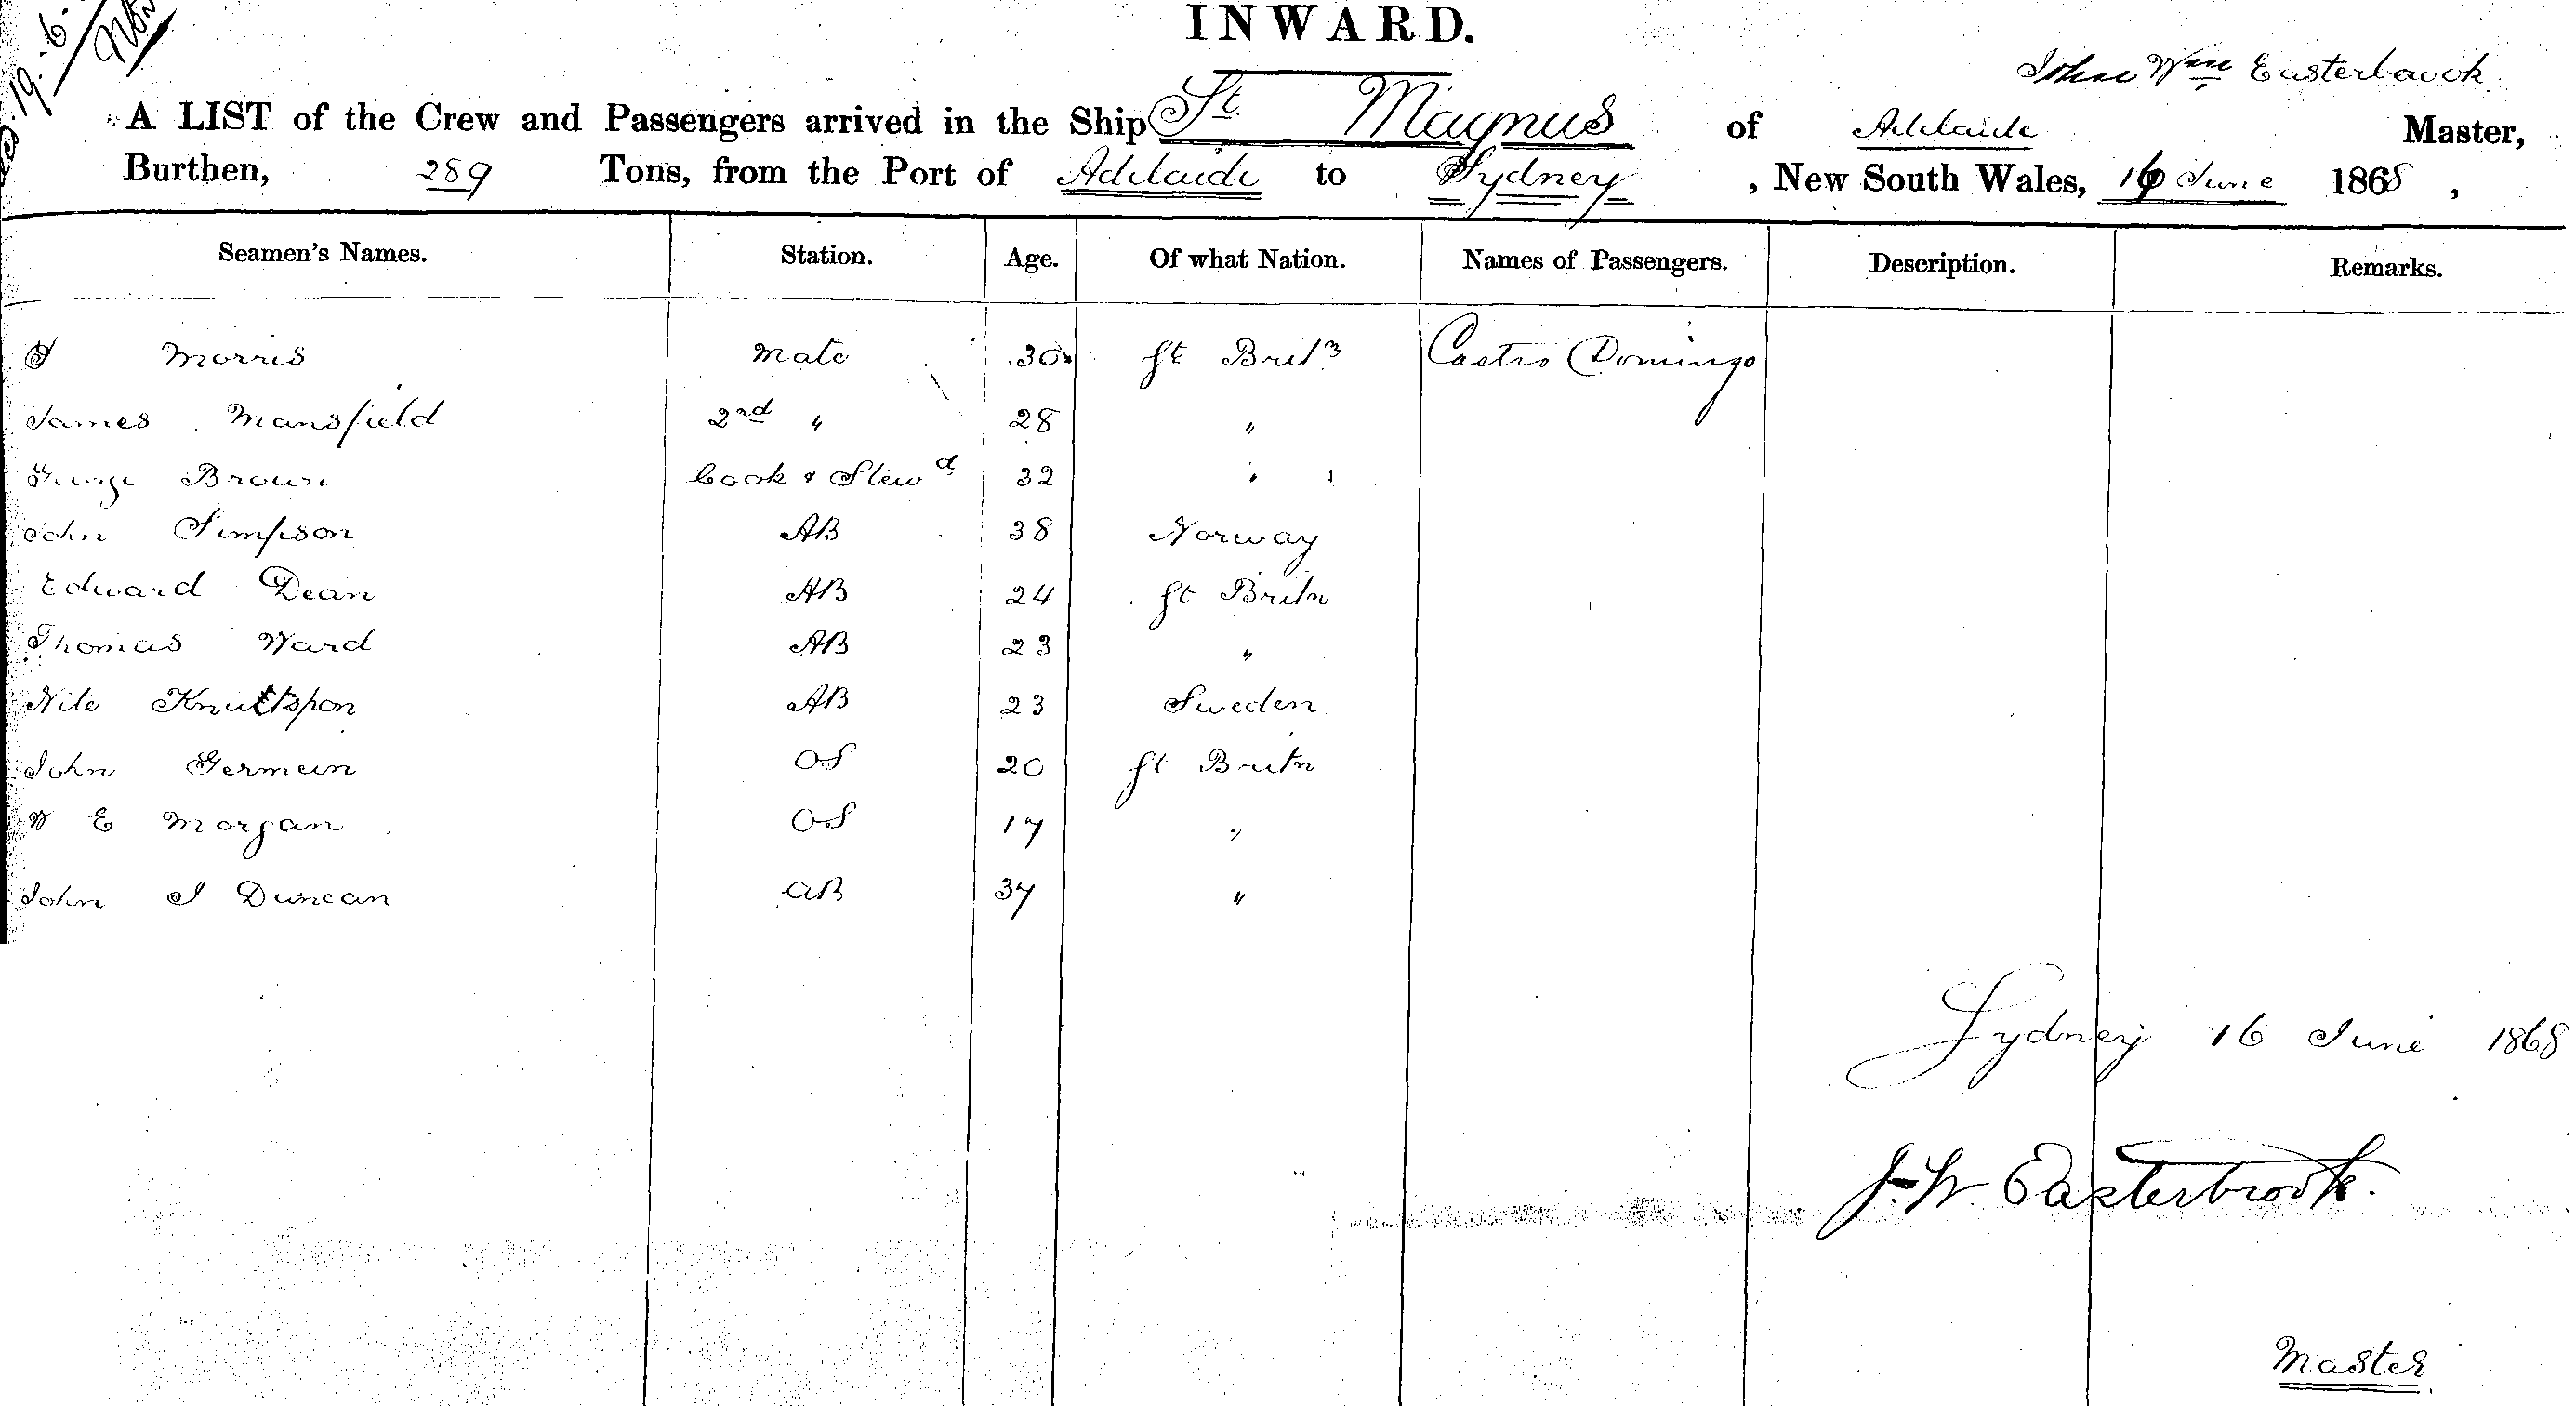 19.-6.-
INWARD.
John Wm Easterbrook
A LIST of the Crew and Passengers arrived in the Ship St. Magnus of Adelaide Master,
Burthen, 289 Tons, from the Port of Adelaide to Sydney, New South Wales, 16 June 1868,
Seamen's Names. Station. Age. Of what Nation. Names of Passengers. Description. Remarks.
Morris Mate 30 Gt Britn Castro Domingo
James Mansfield 2nd " 28 "
George Brown Cook & Stewd 32 "
John Simpson AB 38 Norway
Edward Dean AB 24 Gt Britn
Thomas Ward AB 23 "
Nite Knuttspon AB 23 Sweden
John Germein OS 20 Gt Britn
W E Morgan OS 17 "
John J Duncan AB 37 "
Sydney 16 June 1868
J. W. Easterbrook.
Master